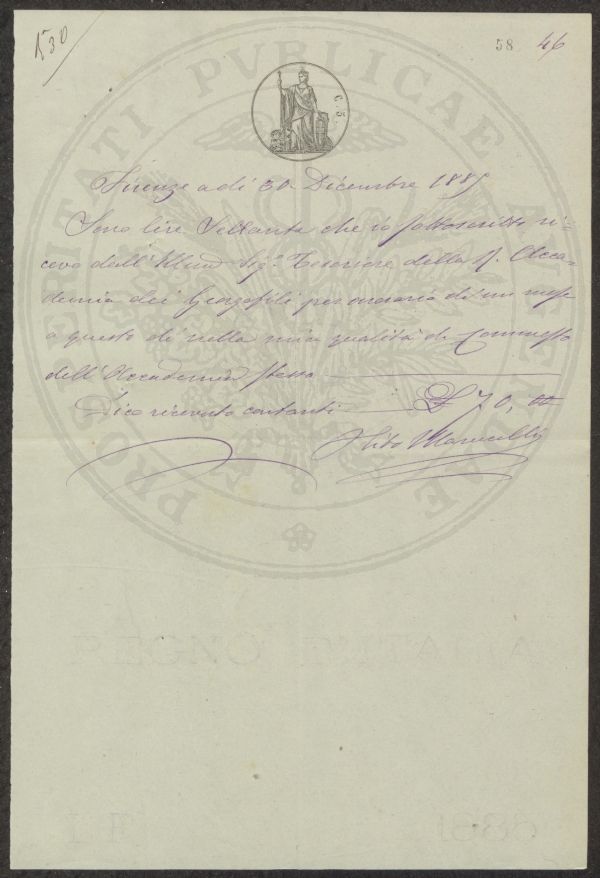 130
58 46
PROSPERITATI PVBLICAE AVGENDAE
C. 5.
Firenze a dì 30 Dicembre 1889
Sono lire Settanta che io sottoscritto ri-
cevo dall' Illmo Sigr. Tesoriere della R. Acca-
demia dei Georgofili per onoraria di un mese
a questo dì nella mia qualità di Commesso
dell' Accademia stessa
Dico ricevuto contanti £ 70, 00
REGNO D'ITALIA
1889